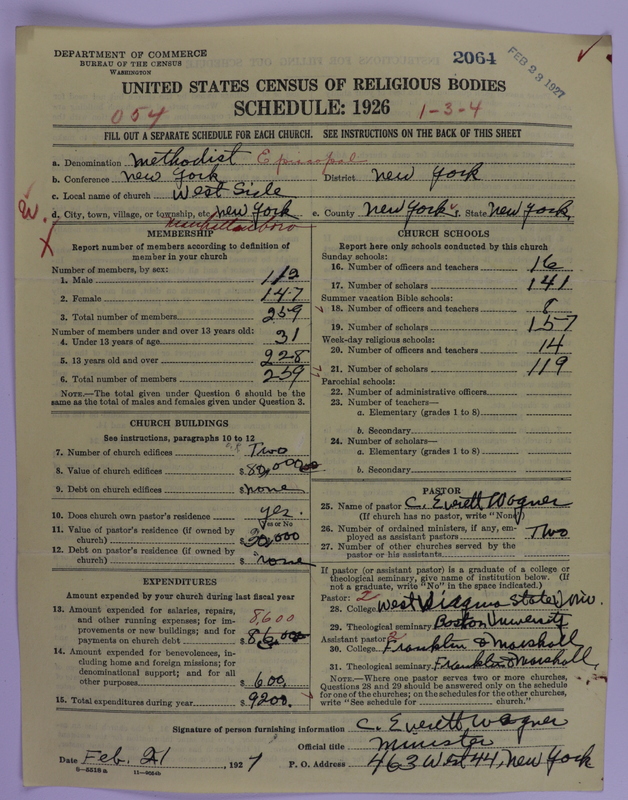 DEPARTMENT OF COMMERCE
BUREAU OF THE CENSUS
WASHINGTON
2064
FEB 23 1927
UNITED STATES CENSUS OF RELIGIOUS BODIES
SCHEDULE: 1926
054
1-3-4
FILL OUT A SEPARATE SCHEDULE FOR EACH CHURCH. SEE INSTRUCTIONS ON THE BACK OF THIS SHEET
a. Denomination Methodist Episcopal
b. Conference New York District New York
c. Local name of church West Side
d. City, town, village, or township, etc. New York e. County New York f. State New York,
Manhattan boro
MEMBERSHIP
Report number of members according to definition of
member in your church
Number of members, by sex:
1. Male 112
2. Female 147
3. Total number of members 259
Number of members under and over 13 years old:
4. Under 13 years of age 31
5. 13 years old and over 228
6. Total number of members 259
NOTE.—The total given under Question 6 should be
the same as the total of males and females given under Question 3.
CHURCH BUILDINGS
See instructions, paragraphs 10 to 12
7. Number of church edifices Two
8. Value of church edifices $ 80,000
9. Debt on church edifices $ none
10. Does church own pastor's residence yes.
Yes or No
11. Value of pastor's residence (if owned by
church) $
12. Debt on pastor's residence (if owned by
church) $ none
EXPENDITURES
Amount expended by your church during last fiscal year
13. Amount expended for salaries, repairs,
and other running expenses; for im-
provements or new buildings; and for
payments on church debt 8,600
14. Amount expended for benevolences, in-
cluding home and foreign missions; for
denominational support; and for all
other purposes $ 600
15. Total expenditures during year $ 9200.
CHURCH SCHOOLS
Report here only schools conducted by this church
Sunday schools:
16. Number of officers and teachers 16
17. Number of scholars 141
Summer vacation Bible schools:
18. Number of officers and teachers 8
19. Number of scholars 157
Week-day religious schools:
20. Number of officers and teachers 14
21. Number of scholars 119
Parochial schools:
22. Number of administrative officers
23. Number of teachers—
a. Elementary (grades 1 to 8)
b. Secondary
24. Number of scholars—
a. Elementary (grades 1 to 8)
b. Secondary
PASTOR
25. Name of pastor C. Everett Wagner
(If church has no pastor, write "None")
26. Number of ordained ministers, if any, em-
ployed as assistant pastors Two
27. Number of other churches served by the
pastor or his assistants
If pastor (or assistant pastor) is a graduate of a college or
theological seminary, give name of institution below. (If
not a graduate, write "No" in the space indicated.)
Pastor: 2
28. College West Virginia State Univ.
29. Theological seminary Boston University
Assistant pastor: 2
30. College Franklin & Marshall
31. Theological seminary Franklin & Marshall,
NOTE.—Where one pastor serves two or more churches,
Questions 28 and 29 should be answered only on the schedule
for one of the churches; on the schedules for the other churches,
write "See schedule for church."
Signature of person furnishing information C. Everett Wagner
Official title Minister
Date Feb. 21, 1927 P. O. Address 463 West 44, New York
8—5518a 11—9054b